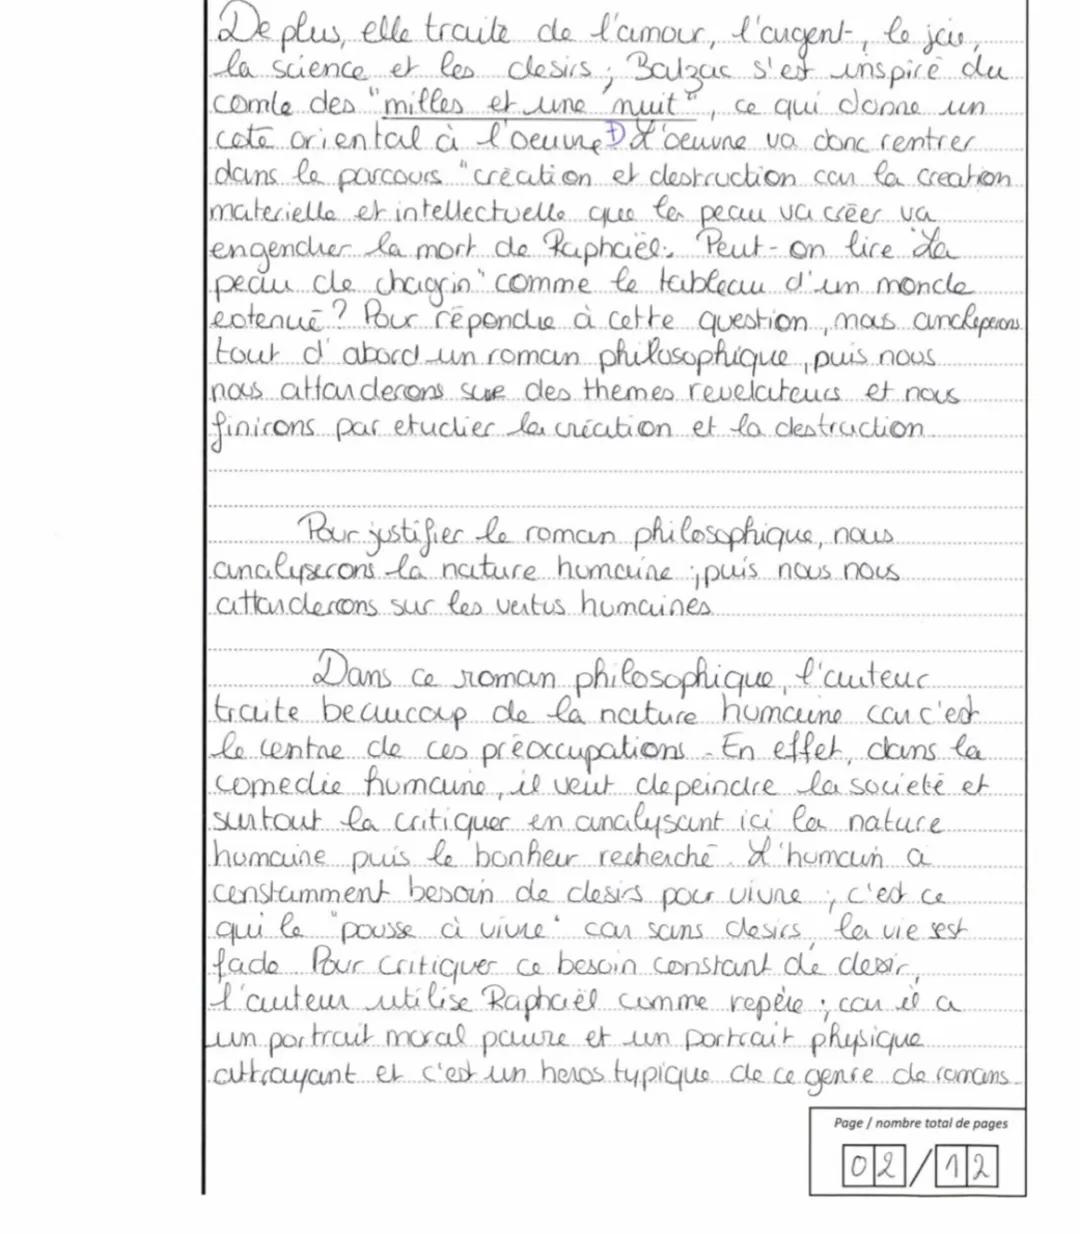 De plus, elle traite de l'amour, l'argent, le jeu,
la science et les desirs ; Balzac s'est inspiré du
comte des "milles et une nuit", ce qui donne un
coté oriental à l'oeuvre. L'oeuvre va donc rentrer
dans le parcours "création et destruction car la creation
materielle et intellectuelle que la peau va créer va
engendrer la mort de Raphaël. Peut-on lire "La
peau de chagrin" comme le tableau d'un monde
extenué ? Pour répondre à cette question, nous analyserons
tout d'abord un roman philosophique, puis nous
nous attarderons sur des themes revelateurs et nous
finirons par etudier la création et la destruction.
Pour justifier le roman philosophique, nous
analyserons la nature humaine ; puis nous nous
attarderons sur les vertus humaines
Dans ce roman philosophique, l'auteur
traite beaucoup de la nature humaine car c'est
le centre de ces préoccupations. En effet, dans la
comedie humaine, il veut depeindre la societé et
surtout la critiquer en analysant ici la nature
humaine puis le bonheur recherché. L'humain a
constamment besoin de desirs pour vivre ; c'est ce
qui le "pousse à vivre" car sans desirs, la vie est
fade. Pour critiquer ce besoin constant de desir,
l'auteur utilise Raphaël comme repère ; car il a
un portrait moral pauvre et un portrait physique
attrayant et c'est un heros typique de ce genre de romans.
Page / nombre total de pages
02/12